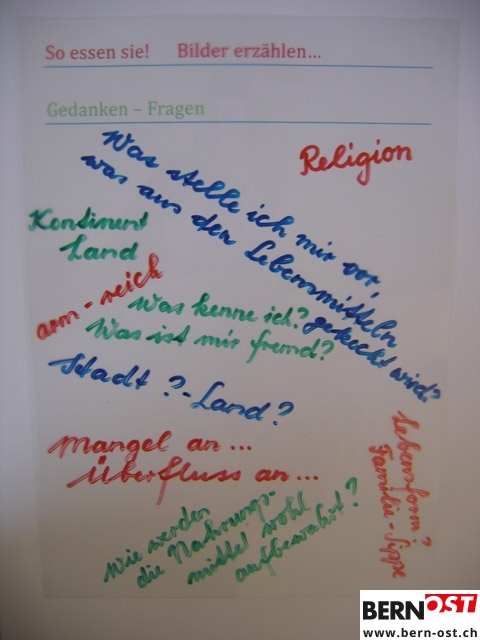 So essen sie! Bilder erzählen...
Gedanken – Fragen
Was stelle ich mir vor,
was aus den Lebensmitteln
gekocht wird?
Religion
Kontinent
Land
arm - reich
Was kenne ich?
Was ist mir fremd?
Stadt ? - Land ?
Mangel an ...
Überfluss an ...
Lebensform?
Familie - Sippe
Wie werden
die Nahrungs-
mittel wohl
aufbewahrt?
BERNOST
www.bern-ost.ch